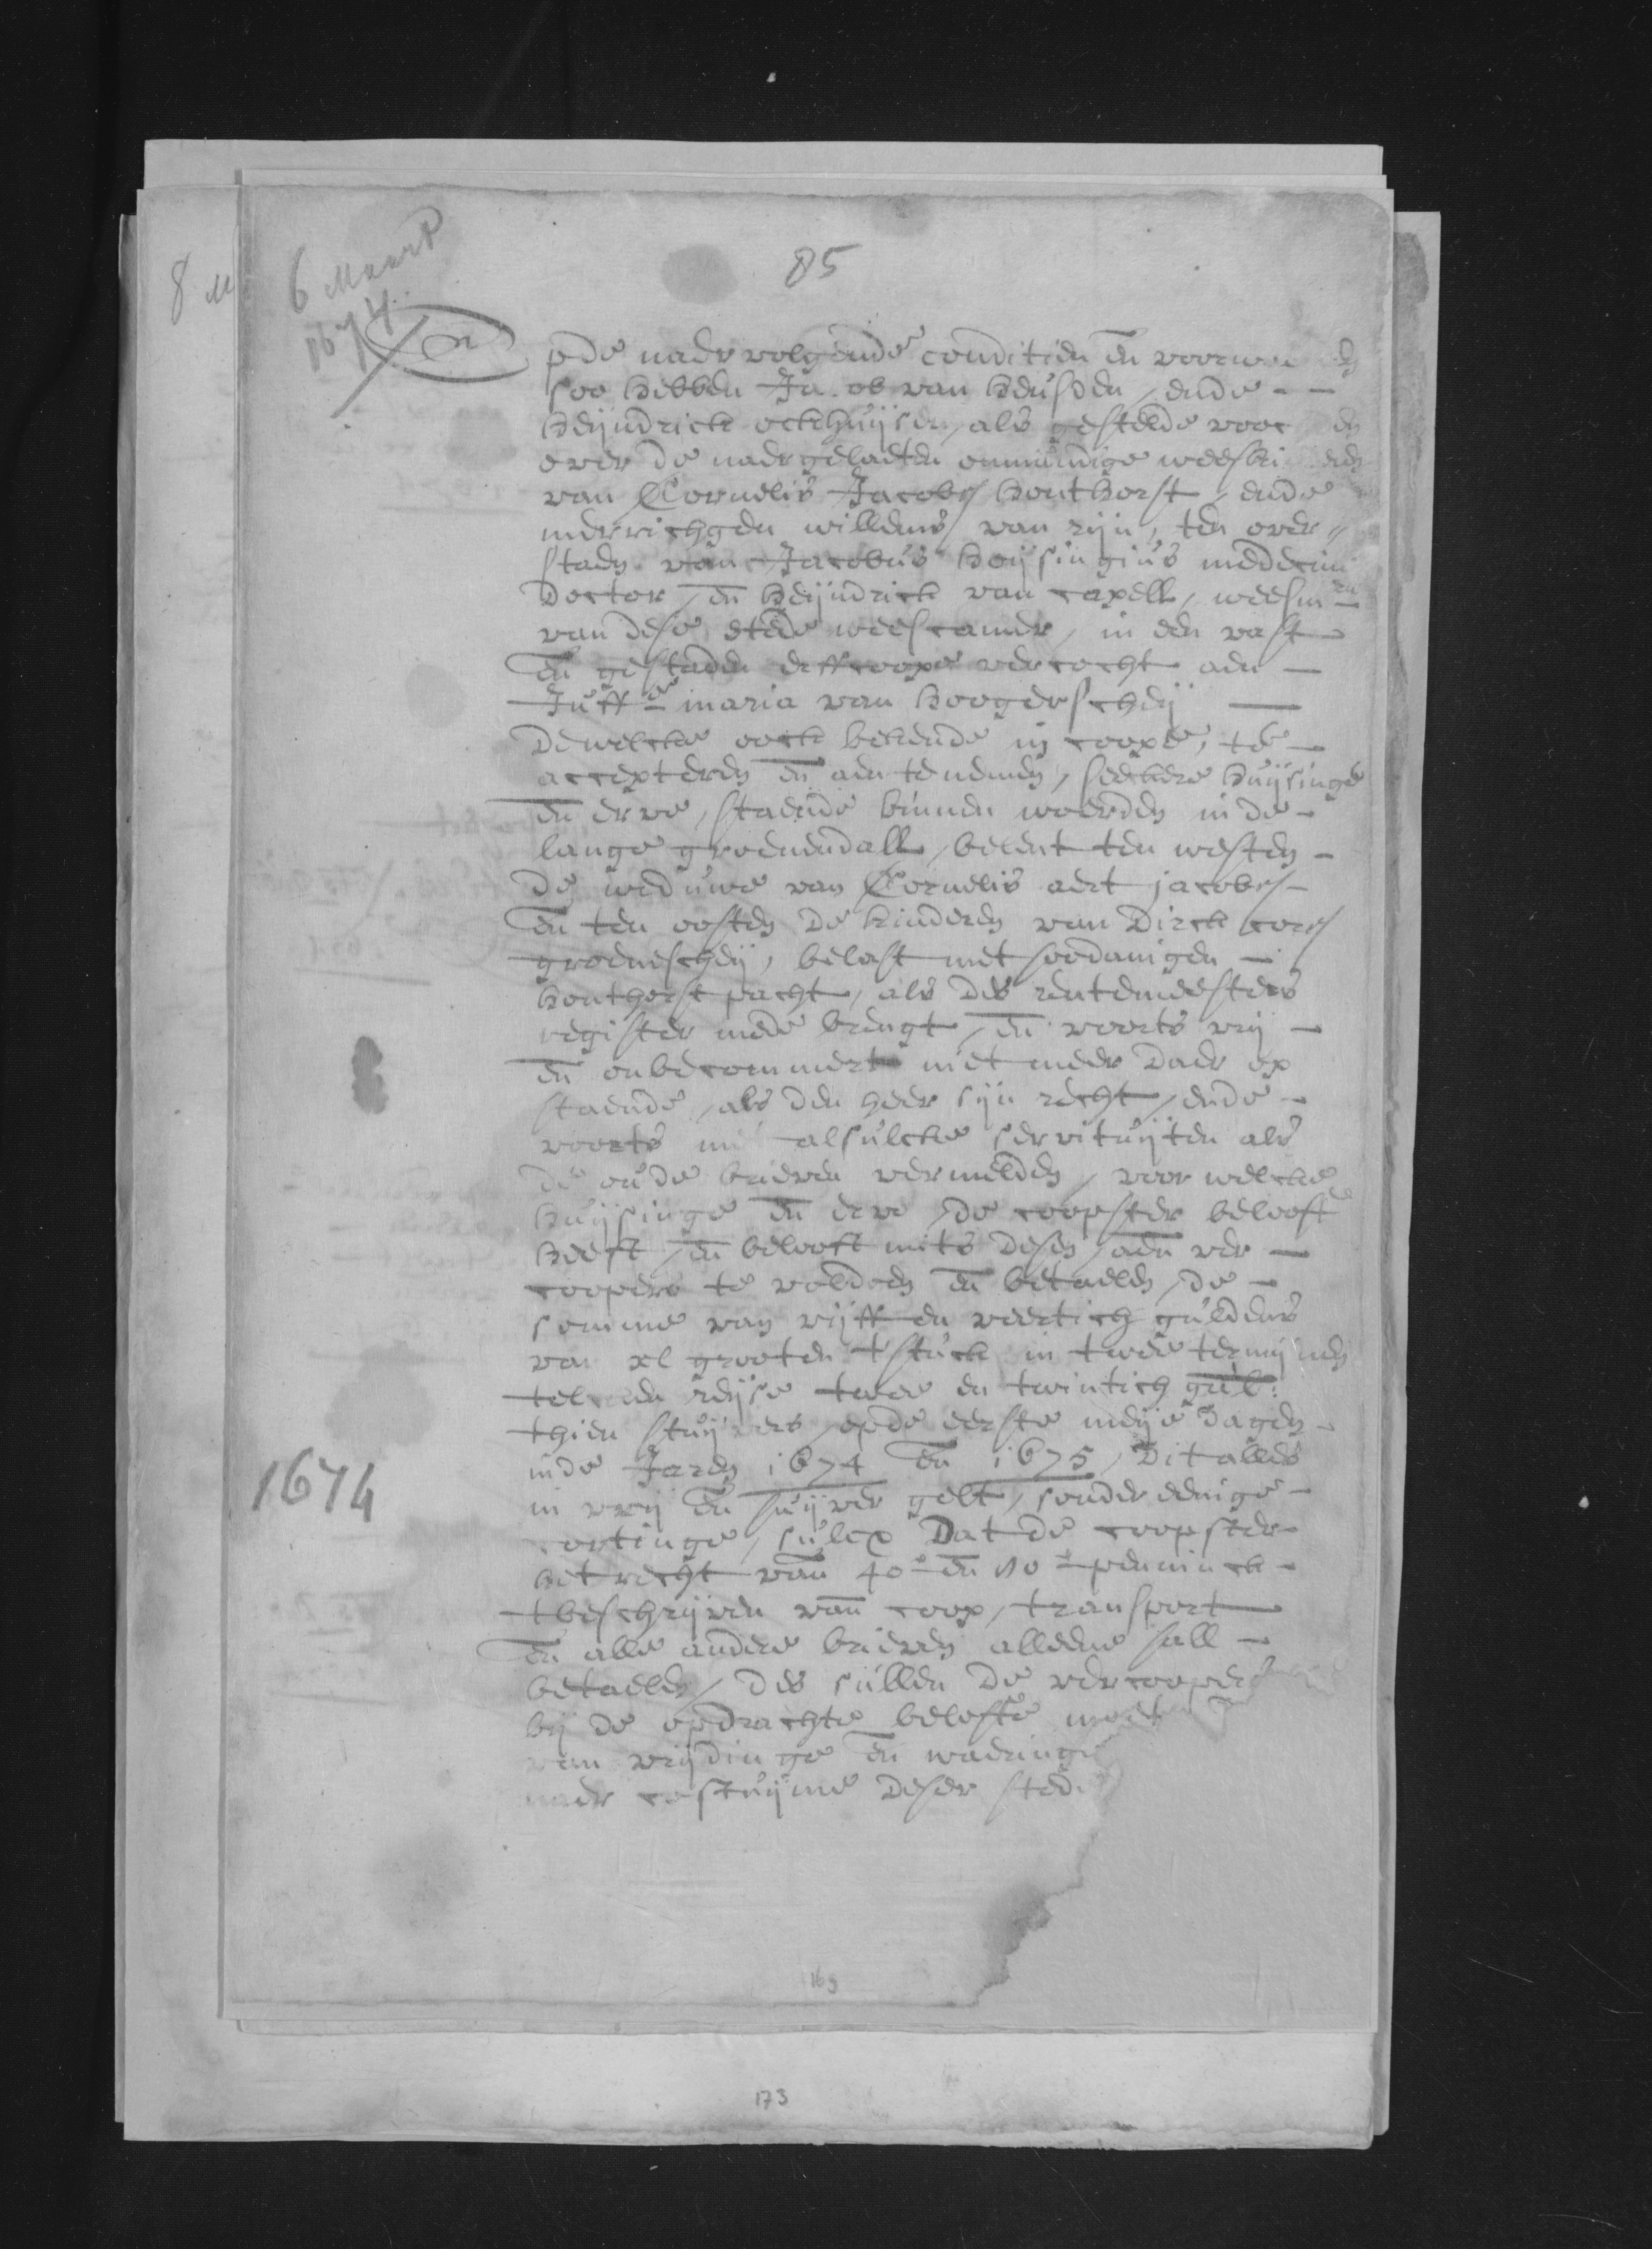 85
8 M
6 Maart
1674
Op de naervolgende conditien en voorwae den
soo hebben Ja ob van heusden, ende
heijndrick ockhuijsen, als gestelde voor den
over de naergelaeten onmundige weeski deren
van Cornelis Jacobs houthorst, ende
merrichgen willems van zijn, ten over
staen van Jacobus hoijsingius medecine
Doctor, en heijndrick van capell, weesmrn
van dese stede weescamer, in een vast
en gestaden erffcoope vercocht aen
Juffe maria van hoogerscheij
Dewelcke oock bekende in coope, te
accepteren en aen te nemen, seeckere huijsinge
en erve, staende binnen woerden in de
lange groenendall, belent ten westen
de weduwe van Cornelis aert jacobs
en ten oosten de kinderen van Dirck cors
groenescheij, belast met soodanigen
houthorst pacht, als des rentemeesters
register mede brengt, en voorts vrij
en onbecommert niet meer daer op
staende, als den heer sijn recht, ende
voorts m alsulcke servituijten als
de oude brieven vermelden, voor welcke
huijsinge en erve, de coopster belooft
heeft, en belooft mits desen, aen ver
coopers te voldoen en betaelen, de
somme van vijff en veertich guldens
van xl grooten tstuck in twee termijnen
tel en reijse twee en twintich gul:
thien stuijvers, op de eerste meije dagen
inde Jaren 1674 en 1675, Dit alles
1674
in vrij en suijver gelt, sonder eenige
cortinge, sulcx Dat de coopster
het recht van 40e en 80e penninck
tbeschrijven van coop, transport
en alle andere brieven alleene sall
betaelen, des sullen de vercoopers
bij de opdrachte belofte moet
van vrijdinge en waeringe
naer costuijme deser stede
169
173